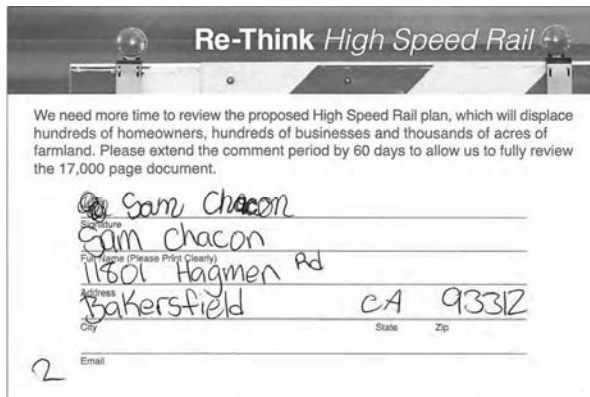 Re-Think High Speed Rail
We need more time to review the proposed High Speed Rail plan, which will displace
hundreds of homeowners, hundreds of businesses and thousands of acres of
farmland. Please extend the comment period by 60 days to allow us to fully review
the 17,000 page document.
Sam Chacon
Signature
Sam Chacon
Full Name (Please Print Clearly)
11801 Hagmen Rd
Address
Bakersfield CA 93312
City State Zip
Email
2